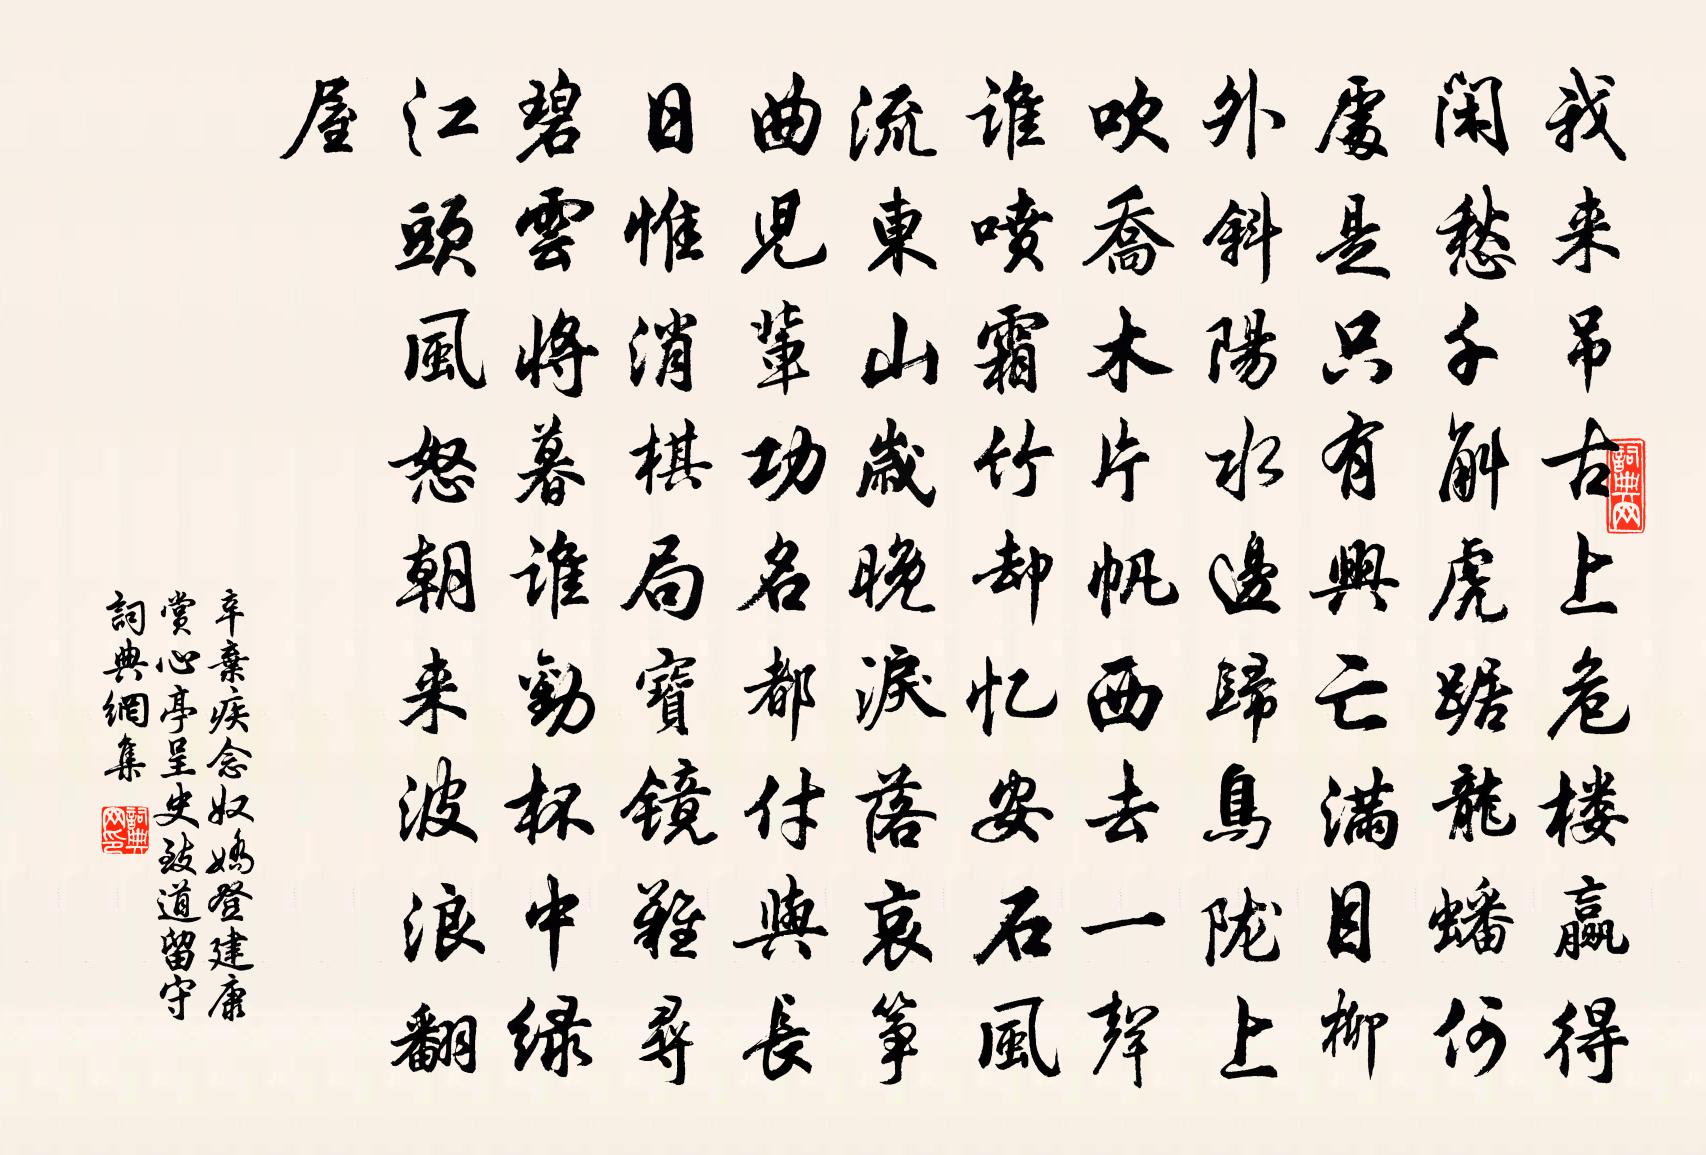 我来吊古上危楼贏得
閑愁千斛虎踞龍蟠何
處是只有興亡滿目柳
外斜陽水邊歸鳥陇上
吹喬木片帆西去一聲
谁噴霜竹却忆安石風
流東山歲晚淚落哀筝
曲兒輩功名都付與長
日惟消棋局寶镜難尋
碧雲將暮谁勸杯中绿
江頭風怒朝来波浪翻
屋
辛棄疾念奴嬌登建康
賞心亭呈史致道留守
詞典網集
詞典网
詞典网印